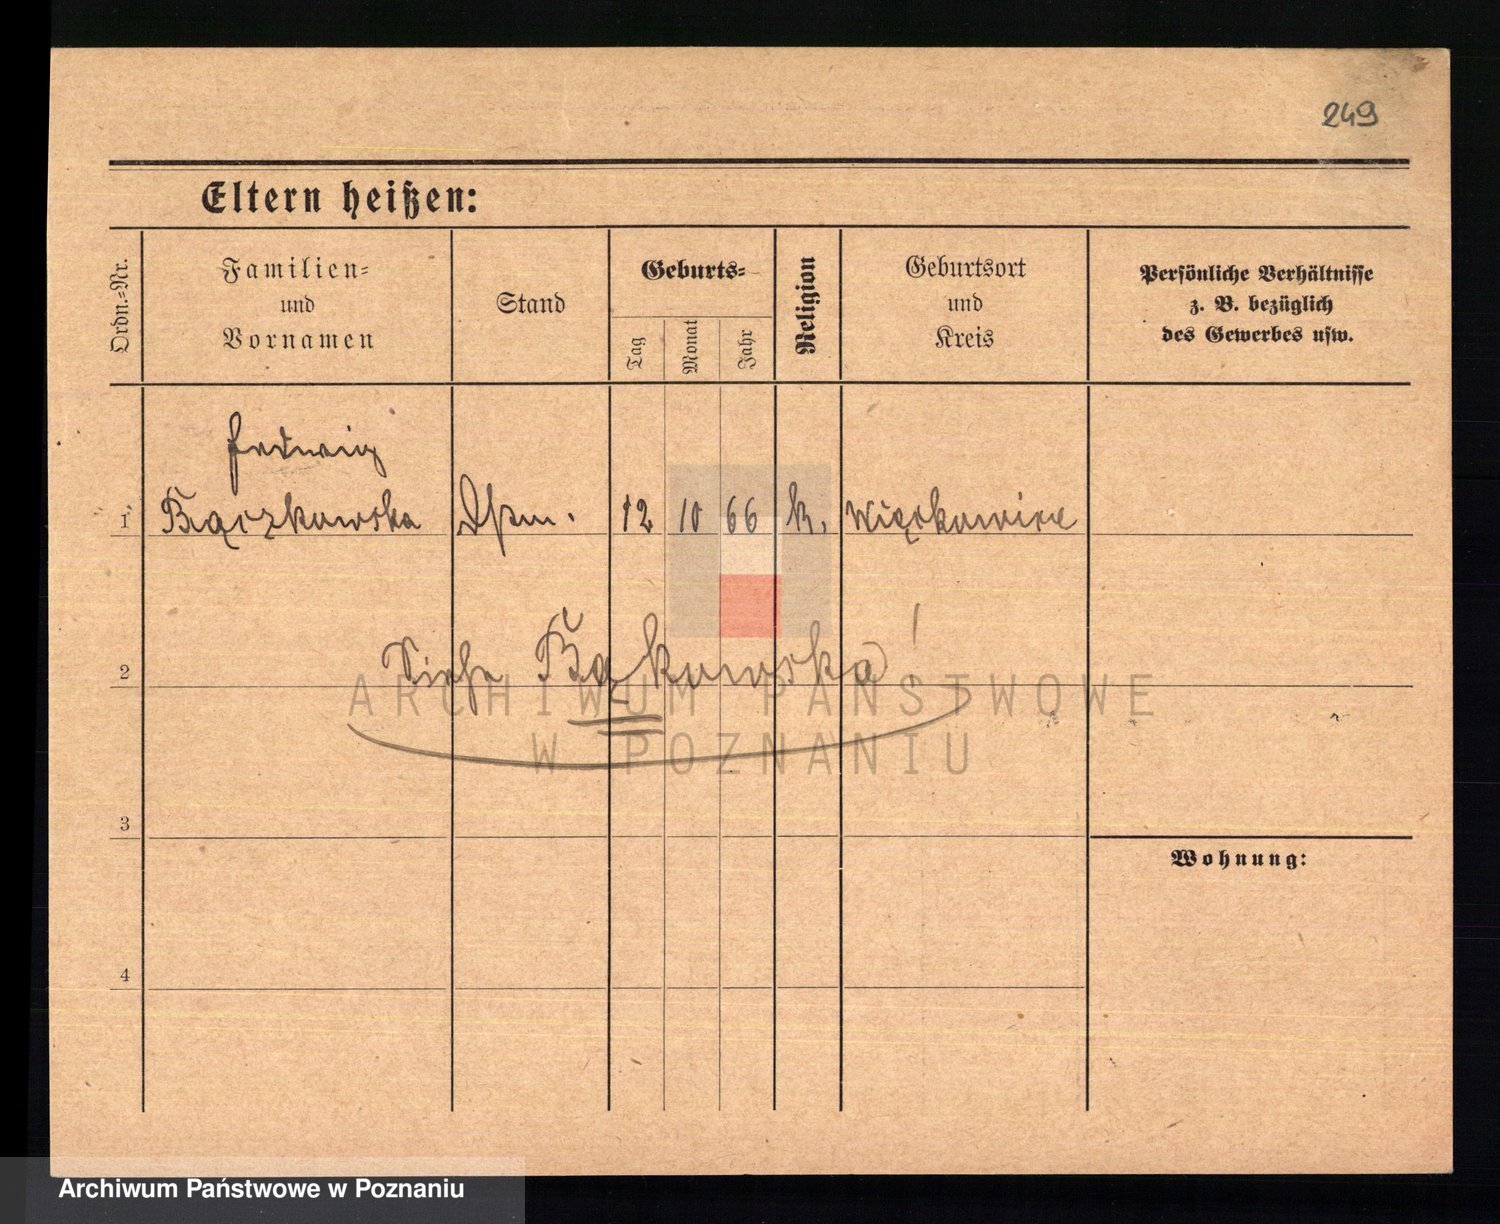 249
Eltern heißen:
Ordn.-Nr.
Familien-
und
Vornamen
Stand
Geburts-
Tag
Monat
Jahr
Religion
Geburtsort
und
Kreis
Persönliche Verhältnisse
z. B. bezüglich
des Gewerbes usw.
Hedwig
1 Bączkowska 12 10 66 k. Więckowice
Siehe Bąkowska!
2
3
Wohnung:
4
ARCHIWUM PAŃSTWOWE
W POZNANIU
Archiwum Państwowe w Poznaniu